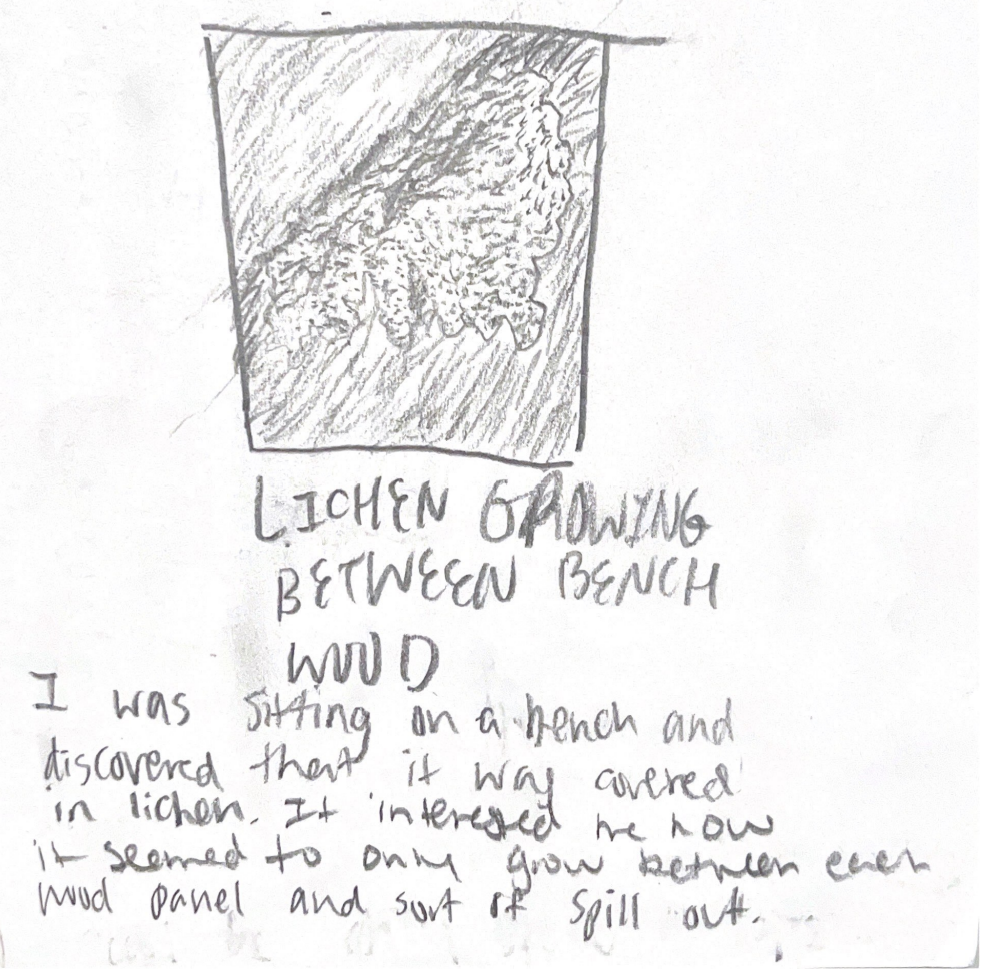 LICHEN GROWING
BETWEEN BENCH
WOOD
I was sitting on a bench and
discovered that it was covered
in lichen. It interested me how
it seemed to only grow between each
wood panel and sort of spill out.